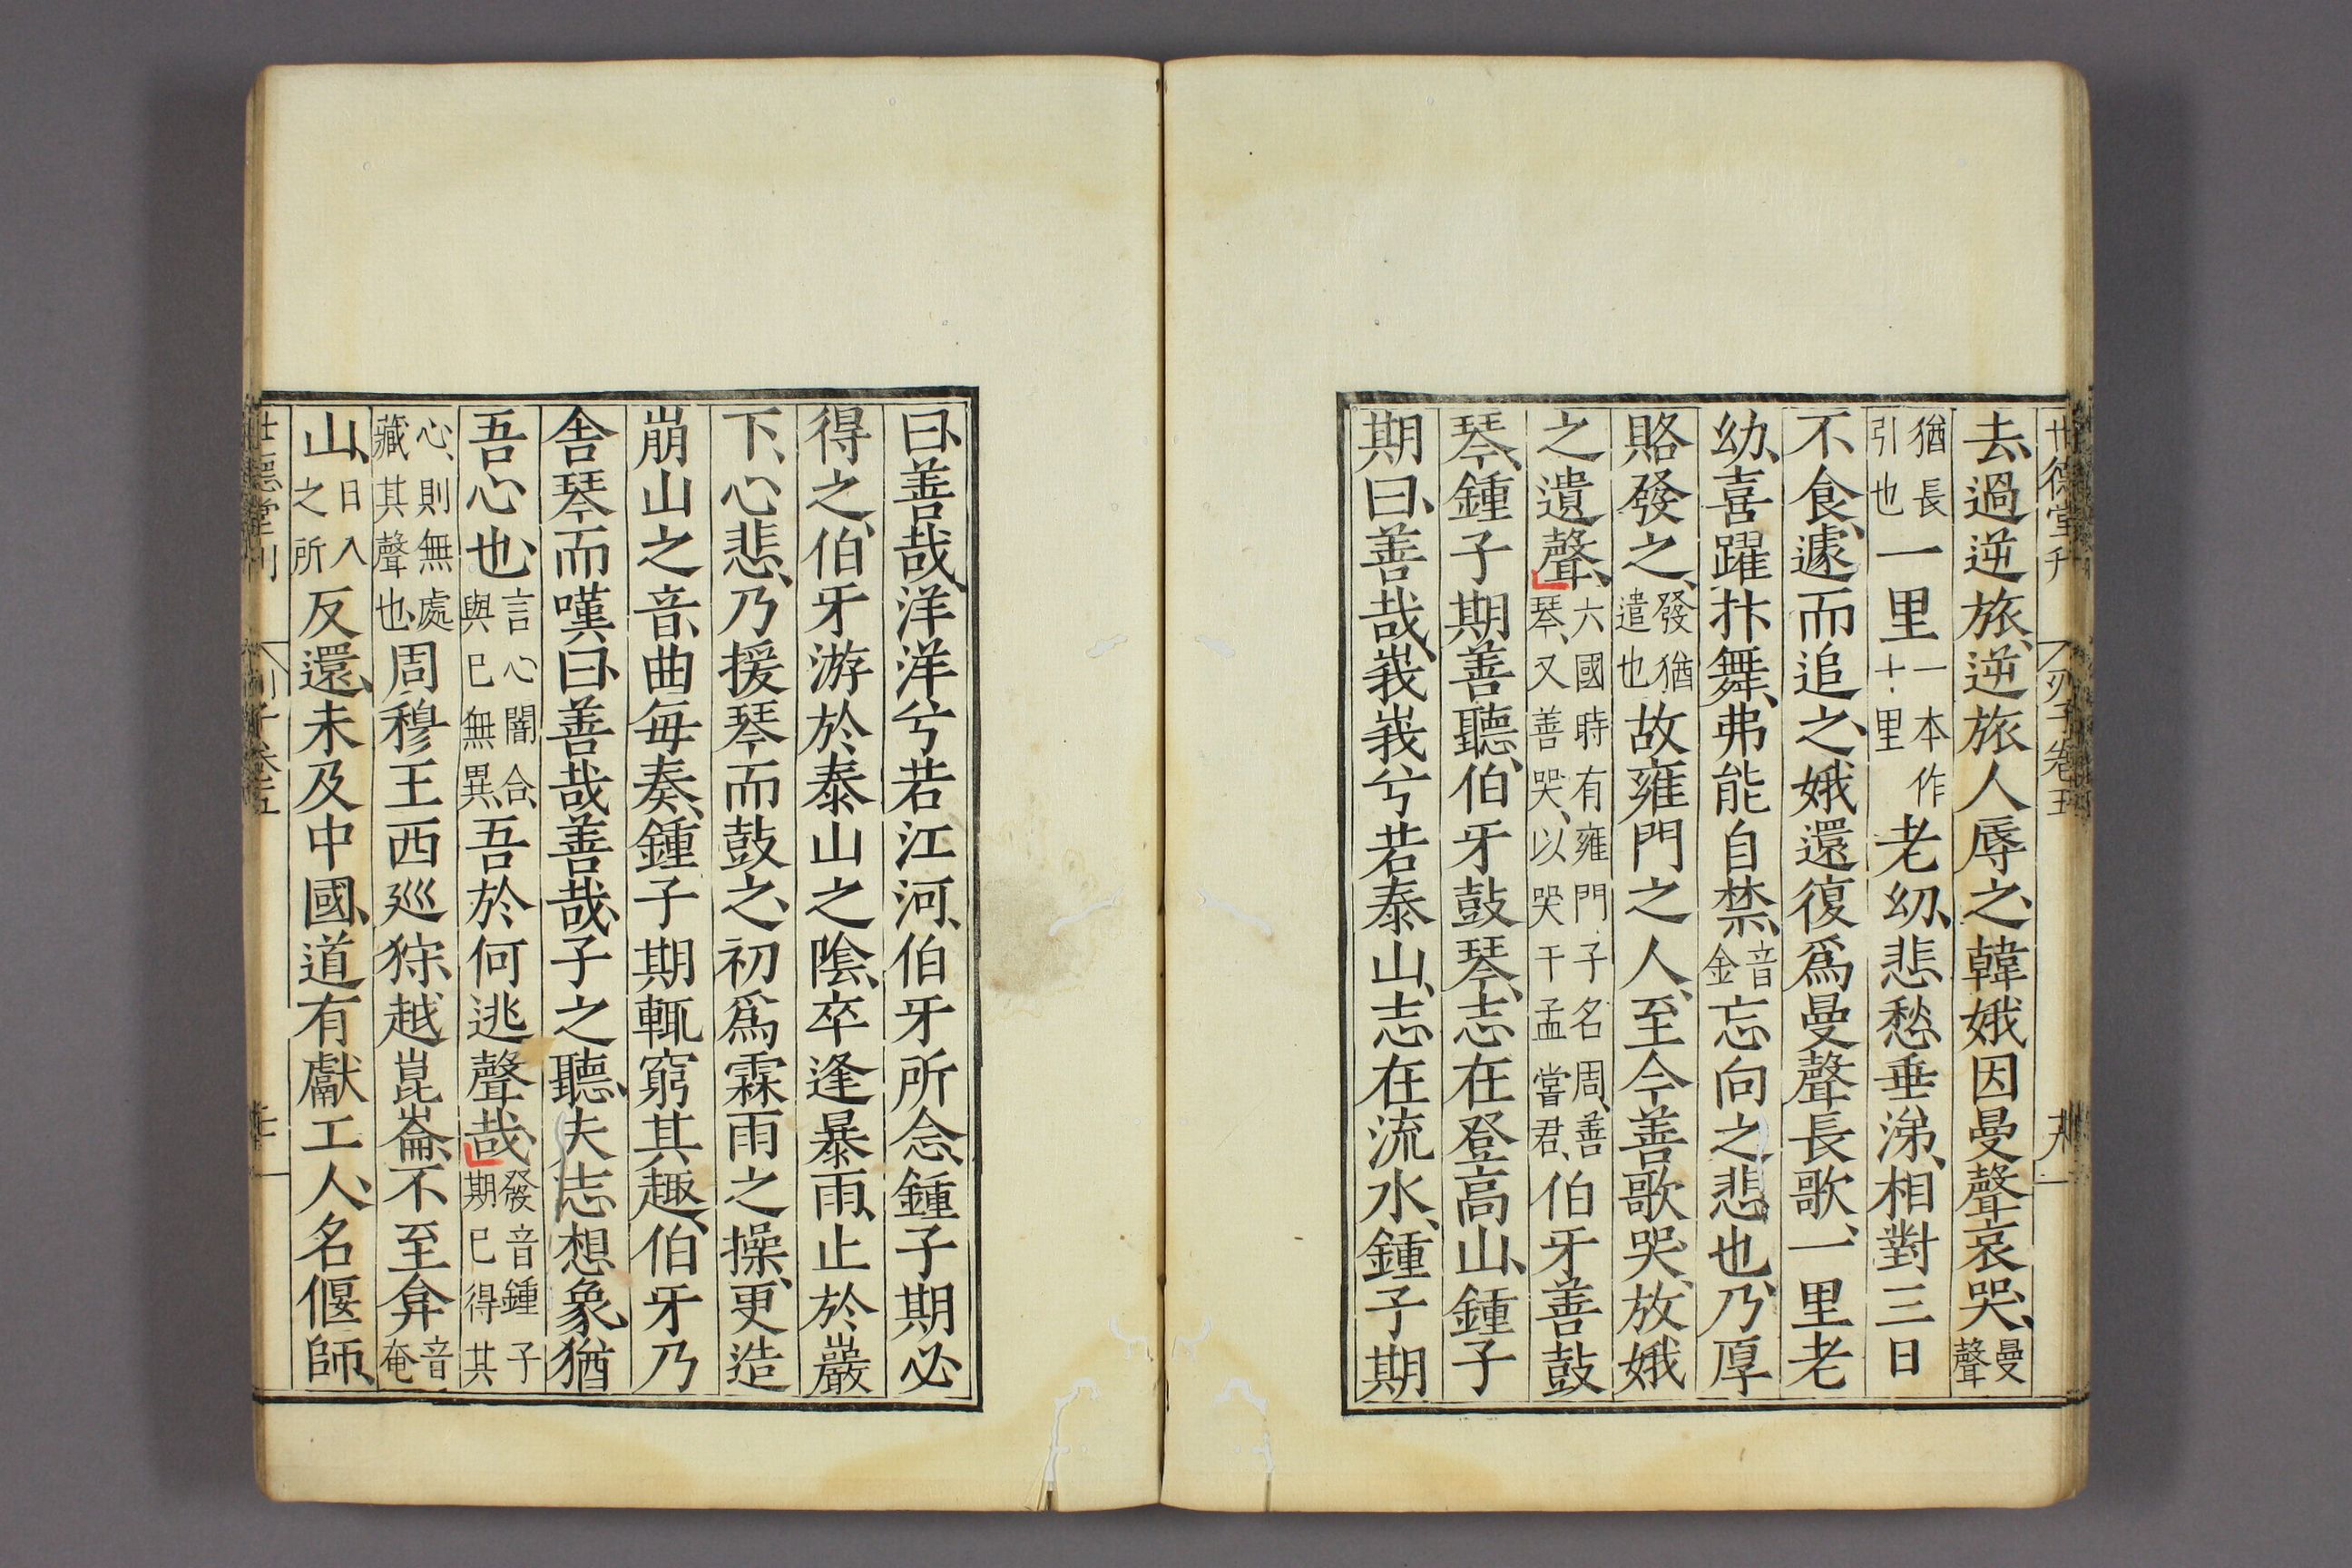 去、過逆旅、逆旅人辱之、韓娥因曼聲哀哭、曼聲
猶長引也一里一本作十里老幼、悲愁、垂涕、相對三日
不食、遽而追之、娥還復爲曼聲長歌、一里老
幼、喜躍抃舞、弗能自禁、音金忘向之悲也、乃厚
賂發之、發猶遣也故雍門之人、至今善歌哭、放娥
之遺聲、六國時有雍門子名周、善琴、又善哭、以哭干孟嘗君、伯牙善鼓
琴、鍾子期善聽、伯牙鼓琴、志在登高山、鍾子
期曰、善哉、峩峩兮若泰山、志在流水、鍾子期
曰、善哉、洋洋兮若江河、伯牙所念、鍾子期必
得之、伯牙游於泰山之陰、卒逢暴雨、止於巖
下、心悲、乃援琴而鼓之、初爲霖雨之操、更造
崩山之音、曲每奏、鍾子期輒窮其趣、伯牙乃
舍琴而嘆曰、善哉善哉、子之聽、夫志想象、猶
吾心也、言心闇合、與已無異、吾於何逃聲哉、發音鍾子期已得其
心、則無處藏其聲也、周穆王西巡狩、越崑崙、不至弇音奄
山、日入之所反還、未及中國、道有獻工人、名偃師、